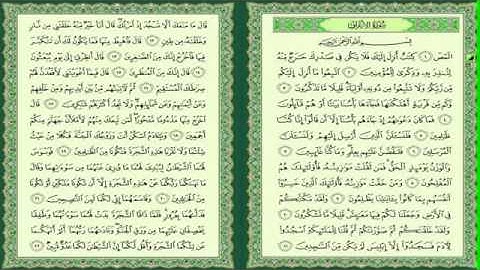 سُورَةُ الأَعْرَافِ
بِسْمِ اللَّهِ الرَّحْمَٰنِ الرَّحِيمِ
الٓمٓصٓ ١ كِتَٰبٌ أُنزِلَ إِلَيْكَ فَلَا يَكُن فِي صَدْرِكَ حَرَجٌ مِّنْهُ
لِتُنذِرَ بِهِۦ وَذِكْرَىٰ لِلْمُؤْمِنِينَ ٢ ٱتَّبِعُوا۟ مَآ أُنزِلَ إِلَيْكُم
مِّن رَّبِّكُمْ وَلَا تَتَّبِعُوا۟ مِن دُونِهِۦٓ أَوْلِيَآءَ قَلِيلًا مَّا تَذَكَّرُونَ ٣
وَكَم مِّن قَرْيَةٍ أَهْلَكْنَٰهَا فَجَآءَهَا بَأْسُنَا بَيَٰتًا أَوْ هُمْ قَآئِلُونَ
٤ فَمَا كَانَ دَعْوَىٰهُمْ إِذْ جَآءَهُم بَأْسُنَآ إِلَّآ أَن قَالُوٓا۟ إِنَّا كُنَّا
ظَٰلِمِينَ ٥ فَلَنَسْـَٔلَنَّ ٱلَّذِينَ أُرْسِلَ إِلَيْهِمْ وَلَنَسْـَٔلَنَّ
ٱلْمُرْسَلِينَ ٦ فَلَنَقُصَّنَّ عَلَيْهِم بِعِلْمٍ وَمَا كُنَّا غَآئِبِينَ ٧
وَٱلْوَزْنُ يَوْمَئِذٍ ٱلْحَقُّ فَمَن ثَقُلَتْ مَوَٰزِينُهُۥ فَأُو۟لَٰٓئِكَ هُمُ
ٱلْمُفْلِحُونَ ٨ وَمَنْ خَفَّتْ مَوَٰزِينُهُۥ فَأُو۟لَٰٓئِكَ ٱلَّذِينَ خَسِرُوٓا۟
أَنفُسَهُم بِمَا كَانُوا۟ بِـَٔايَٰتِنَا يَظْلِمُونَ ٩ وَلَقَدْ مَكَّنَّٰكُمْ
فِي ٱلْأَرْضِ وَجَعَلْنَا لَكُمْ فِيهَا مَعَٰيِشَ قَلِيلًا مَّا تَشْكُرُونَ ١٠
وَلَقَدْ خَلَقْنَٰكُمْ ثُمَّ صَوَّرْنَٰكُمْ ثُمَّ قُلْنَا لِلْمَلَٰٓئِكَةِ ٱسْجُدُوا۟
لِـَٔادَمَ فَسَجَدُوٓا۟ إِلَّآ إِبْلِيسَ لَمْ يَكُن مِّنَ ٱلسَّٰجِدِينَ ١١
قَالَ مَا مَنَعَكَ أَلَّا تَسْجُدَ إِذْ أَمَرْتُكَ قَالَ أَنَا۠ خَيْرٌ مِّنْهُ خَلَقْتَنِي مِن نَّارٍ
وَخَلَقْتَهُۥ مِن طِينٍ ١٢ قَالَ فَٱهْبِطْ مِنْهَا فَمَا يَكُونُ لَكَ أَن تَتَكَبَّرَ
فِيهَا فَٱخْرُجْ إِنَّكَ مِنَ ٱلصَّٰغِرِينَ ١٣ قَالَ أَنظِرْنِيٓ إِلَىٰ يَوْمِ يُبْعَثُونَ
١٤ قَالَ إِنَّكَ مِنَ ٱلْمُنظَرِينَ ١٥ قَالَ فَبِمَآ أَغْوَيْتَنِي لَأَقْعُدَنَّ لَهُمْ
صِرَٰطَكَ ٱلْمُسْتَقِيمَ ١٦ ثُمَّ لَـَٔاتِيَنَّهُم مِّنۢ بَيْنِ أَيْدِيهِمْ وَمِنْ خَلْفِهِمْ
وَعَنْ أَيْمَٰنِهِمْ وَعَن شَمَآئِلِهِمْ وَلَا تَجِدُ أَكْثَرَهُمْ شَٰكِرِينَ ١٧ قَالَ
ٱخْرُجْ مِنْهَا مَذْءُومًا مَّدْحُورًا لَّمَن تَبِعَكَ مِنْهُمْ لَأَمْلَأَنَّ جَهَنَّمَ مِنكُمْ
أَجْمَعِينَ ١٨ وَيَٰٓـَٔادَمُ ٱسْكُنْ أَنتَ وَزَوْجُكَ ٱلْجَنَّةَ فَكُلَا مِنْ حَيْثُ
شِئْتُمَا وَلَا تَقْرَبَا هَٰذِهِ ٱلشَّجَرَةَ فَتَكُونَا مِنَ ٱلظَّٰلِمِينَ ١٩ فَوَسْوَسَ
لَهُمَا ٱلشَّيْطَٰنُ لِيُبْدِيَ لَهُمَا مَا وُۥرِيَ عَنْهُمَا مِن سَوْءَٰتِهِمَا وَقَالَ
مَا نَهَىٰكُمَا رَبُّكُمَا عَنْ هَٰذِهِ ٱلشَّجَرَةِ إِلَّآ أَن تَكُونَا مَلَكَيْنِ أَوْ تَكُونَا
مِنَ ٱلْخَٰلِدِينَ ٢٠ وَقَاسَمَهُمَآ إِنِّي لَكُمَا لَمِنَ ٱلنَّٰصِحِينَ ٢١
فَدَلَّىٰهُمَا بِغُرُورٍ فَلَمَّا ذَاقَا ٱلشَّجَرَةَ بَدَتْ لَهُمَا سَوْءَٰتُهُمَا وَطَفِقَا
يَخْصِفَانِ عَلَيْهِمَا مِن وَرَقِ ٱلْجَنَّةِ وَنَادَىٰهُمَا رَبُّهُمَآ أَلَمْ أَنْهَكُمَا
عَن تِلْكُمَا ٱلشَّجَرَةِ وَأَقُل لَّكُمَآ إِنَّ ٱلشَّيْطَٰنَ لَكُمَا عَدُوٌّ مُّبِينٌ ٢٢